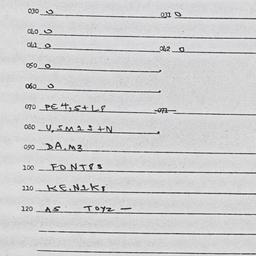 030 0 031 0
040 0
041 0 042 0
050 0
060 0
070 PE 4,5+L8 071
080 V,SM23+N
090 DA.M3
100 FONT83
110 KE.N1K8
120 AS TOYZ -